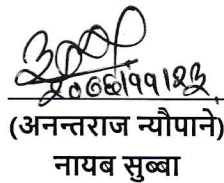 २०७६।११।२३
(अनन्तराज न्यौपाने)
नायब सुब्बा